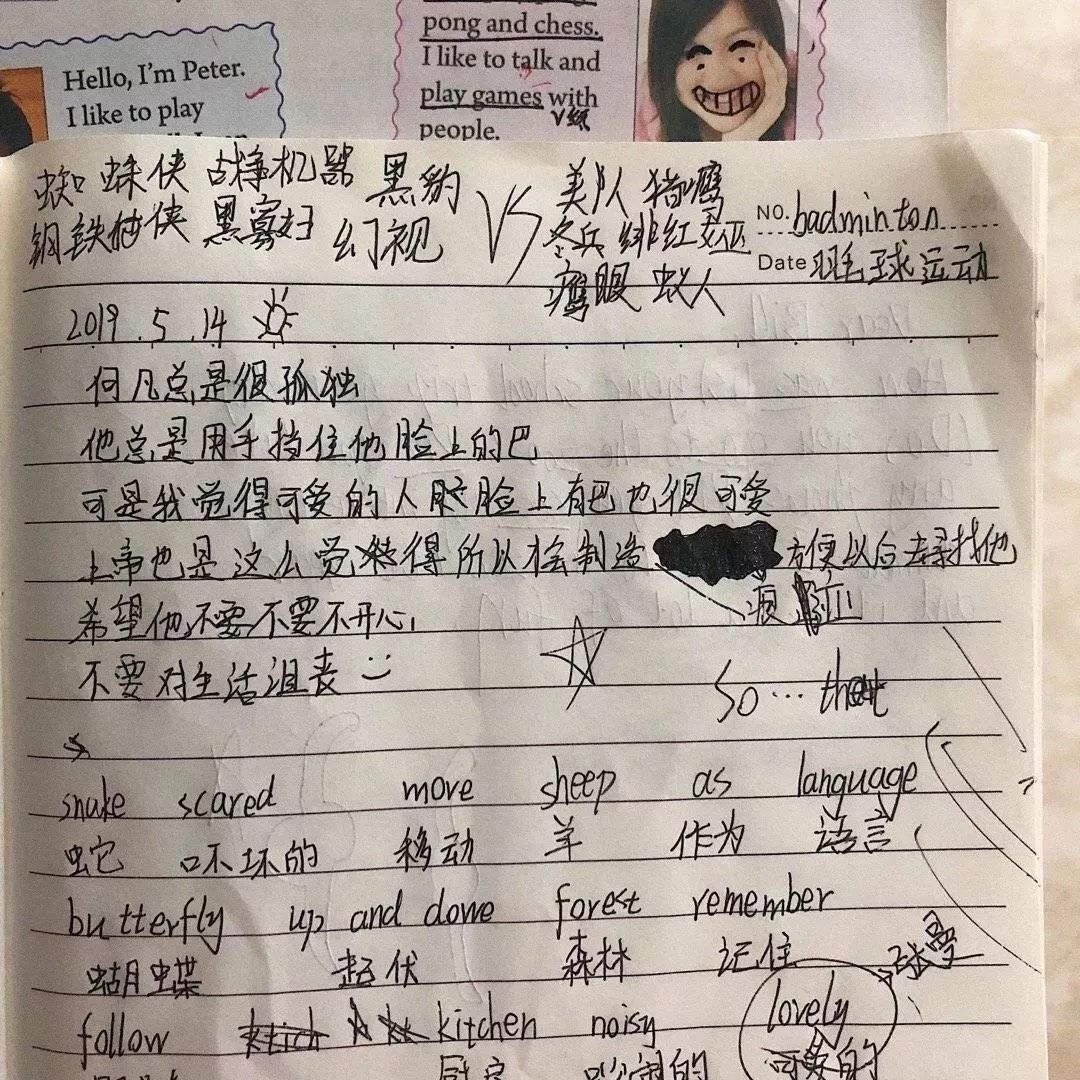 pong and chess.
Hello, I'm Peter.
I like to talk and
I like to play
play games with
people.
蜘蛛侠 战争机器 黑豹
VS
美队 猎鹰
钢铁侠 黑寡妇 幻视
冬兵 绯红女巫
鹰眼 蚁人
NO. badminton
Date 羽毛球运动
2019.5.14
何凡总是很孤独
他总是用手挡住他脸上的巴
可是我觉得可爱的人脸上有巴也很可爱
上帝也是这么觉得所以才会制造 方便以后去寻找他
希望他不要不要不开心
不要对生活沮丧
So … that
snake scared move sheep as language
蛇 吓坏的 移动 羊 作为 语言
butterfly up and dowe forest remember
蝴蝶 起伏 森林 记住
follow kitchen noisy lovely
厨房 吵闹的 可爱的